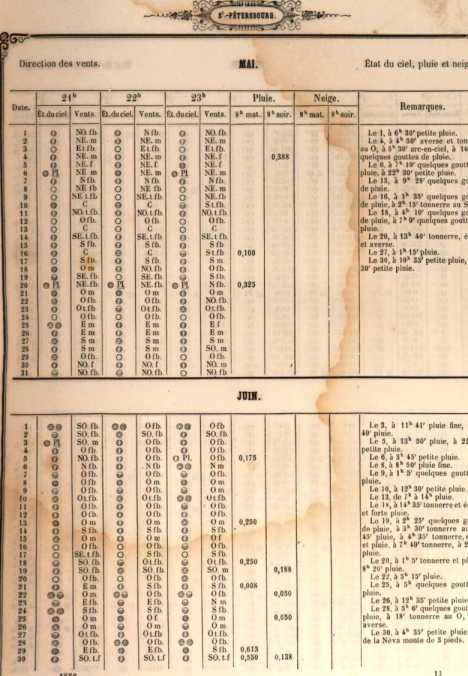 ST-PÉTERSBOURG.
Direction des vents. MAI. État du ciel, pluie et neig
Date. 21h 22h 23h Pluie. Neige. Remarques.
Ét.du ciel. Vents. Ét.du ciel. Vents. Ét.du ciel. Vents. 8h mat. 8h soir. 8h mat. 8h soir.
1 NO.fb. N fb. NO.fb.
2 NE. m NE. m NE. m
3 E t.fb. E t.fb. E t.fb.
4 NE. m NE. m NE. f 0,388
5 NE. f NE. m NE. f
6 Pl. NE. m NE. m Pl. NE. m
7 N fb. N fb. N fb.
8 NE fb NE fb. NE fb.
9 NE t.fb NE t.fb. NE t.fb.
10 C C S t.fb.
11 NO.t.fb NO.t.fb. NO.t.fb.
12 O fb. O fb. O fb.
13 C C C
14 SE.t.fb SE.t.fb. SE.t.fb.
15 S fb. S fb. S fb.
16 C C S t.fb. 0,100
17 S fb. S fb. S m
18 O m NO.fb. O fb.
19 SE. fb. SE.fb. S fb.
20 Pl. NE.fb. Pl. NE.fb. Pl. N fb. 0,325
21 O m O m O m
22 O fb. O fb. NO.fb.
23 O t.fb O t.fb. O t.fb.
24 O fb. O fb. O fb.
25 E m E m E f
26 E m E m E m
27 S m S m S m
28 S m S m SO. m
29 O fb. O fb. O fb.
30 NO. f NO. f NO. m
31 NO. fb. NO. fb. NO. fb.
Le 1, à 6h 30' petite pluie.
Le 4, à 4h 30' averse et ton
au O, à 5h 30' arc-en-ciel, à 16
quelques gouttes de pluie.
Le 6, à 7h 10' quelques goutt
pluie, à 22h 30' petite pluie.
Le 13, à 9h 28' quelques go
de pluie.
Le 16, à 1h 35' quelques go
de pluie, à 2h 15' tonnerre au S
Le 18, à 4h 10' quelques go
de pluie, à 7h 0' quelques goutt
pluie.
Le 26, à 13h 40' tonnerre, é
et averse.
Le 27, à 1h 15' pluie.
Le 30, à 10h 35' petite pluie,
30' petite pluie.
JUIN.
1 SO. fb. O fb. O fb.
2 SO. fb. SO. fb. SO. fb.
3 Pl. SO. m O fb. O fb.
4 O fb. O fb. O fb.
5 NO. fb. O fb. Pl. O fb. 0,175
6 N fb. N fb. N m
7 O fb. O fb. O fb.
8 O fb. O m O m
9 O fb. O fb. O fb.
10 O t.fb. O t.fb. O t.fb.
11 O fb. O fb. O fb.
12 O fb. O fb. O fb.
13 O m O m O m 0,250
14 S fb. S fb. S fb.
15 O m O m O f
16 O fb. O fb. O fb.
17 SE. t.fb S fb. S fb.
18 SO. fb. O t.fb. SO. fb. 0,250
19 SO. fb. SO. fb. SO. m 0,188
20 O fb. O fb. O fb.
21 E m S fb. S fb. 0,008
22 O m O fb. O fb. 0,050
23 E fb. E fb. N m
24 S fb. S fb. O fb.
25 O m O f O m 0,050
26 O m O m O m
27 O t.fb. O t.fb. O t.fb.
28 O fb. O fb. O fb.
29 E fb. E fb. S fb. 0,613
30 SO. t.f SO. t.f SO. t.f 0,550 0,138
Le 3, à 11h 41' pluie fine,
40' pluie.
Le 5, à 13h 90' pluie, à 22
petite pluie.
Le 6, à 3h 45' petite pluie.
Le 8, à 8h 50' pluie fine.
Le 9, à 1h 5' quelques goutt
pluie.
Le 10, à 12h 30' petite pluie.
Le 13, de 7h à 14h pluie.
Le 18, à 14h 35' tonnerre et é
et forte pluie.
Le 19, à 2h 25' quelques g
de pluie, à 3h 30' tonnerre au
45' pluie, à 4h 35' tonnerre, é
et pluie, à 7h 40' tonnerre, à 2
pluie.
Le 20, à 1h 5' tonnerre et pl
8h 20' pluie.
Le 22, à 5h 15' pluie.
Le 25, à 5h quelques goutt
pluie.
Le 26, à 12h 35' petite pluie
Le 28, à 5h 6' quelques gout
pluie, à 18h tonnerre au O,
averse.
Le 30, à 4h 35' petite pluie.
de la Néva monte de 3 pieds.
11